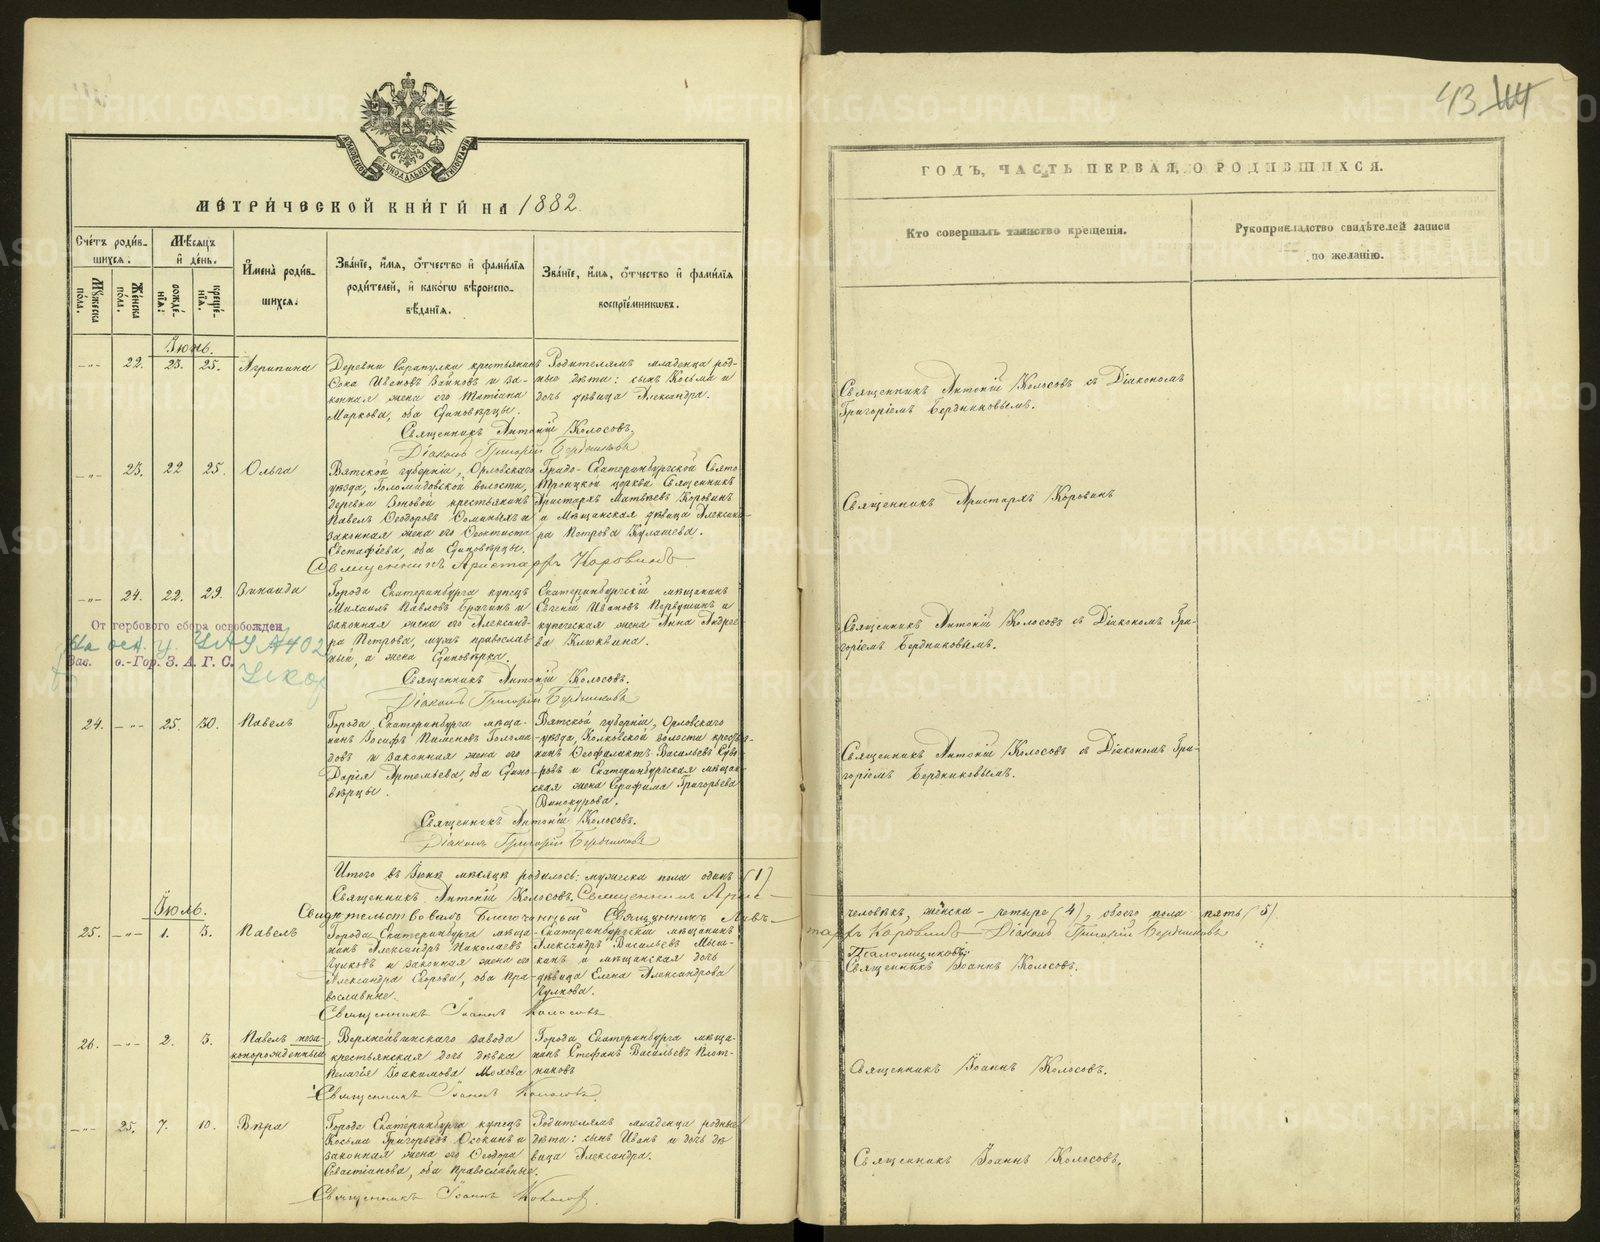 43
МЕТРИЧЕСКОЙ КНИГИ НА 1882.
ГОДЪ, ЧАСТЬ ПЕРВАЯ, О РОДИВШИХСЯ.
Счетъ родившихся.
Мужеска пола.
Женска пола.
Мѣсяцъ и день.
рожденія.
крещенія.
Имена родившихся.
Званіе, имя, отчество и фамилія родителей, и какогѡ вѣроисповѣданія.
Званіе, имя, отчество и фамилія воспріемниковъ.
Кто совершалъ таинство крещенія.
Рукоприкладство свидѣтелей записи по желанію.
Іюнь.
22. 23. 25. Агрипина
Деревни Сарапулки крестьянинъ
Сока Ивановъ Зайковъ и за-
конная жена его Татіана
Маркова, оба Единовѣрцы.
Родителямъ младенца род-
ные дѣти: сынъ Косьма и
дочь дѣвица Александра.
Священникъ Антоній Колосовъ съ Діакономъ
Григоріемъ Бердниковымъ.
Священникъ Антоній Колосовъ.
Діаконъ Григорій Бердниковъ
23. 22 25. Ольга
Вятской губерніи, Орловскаго
уѣзда, волости,
деревни крестьянинъ
Павелъ Ѳеодоровъ и
законная жена его Ѳеоктиста
Евстафіева, оба Единовѣрцы.
Градо-Екатеринбургской Свято
Троицкой церкви Священникъ
Аристархъ Матвѣевъ Коровинъ
и Мѣщанская дѣвица Алексан-
ра Петрова Кулашева.
Священникъ Аристархъ Коровинъ
Священникъ Аристархъ Коровинъ
24. 22. 29. Зинаида
Города Екатеринбурга купецъ
Михаилъ Павловъ Брагинъ и
законная жена его Александ-
ра Петрова, мужъ православ-
ный, а жена Единовѣрка.
Екатеринбургскій мѣщанинъ
Евгеній Ивановъ Первушинъ и
купеческая жена Анна Андрее-
ва Клюквина.
Священникъ Антоній Колосовъ съ Діакономъ Гри-
горіемъ Бердниковымъ.
От гербового сбора освобожден
Зав. о.-Гор. З. А. Г. С.
Священникъ Антоній Колосовъ.
Діаконъ Григорій Бердниковъ
24. 25. 30. Павелъ
Города Екатеринбурга мѣща-
нинъ Іосифъ Пименовъ
и законная жена его
Дарія Артемьева, оба Едино-
вѣрцы.
Вятской губерніи, Орловскаго
уѣзда, волости кресть-
нинъ Ѳеофилактъ Васильевъ
и Екатеринбургская мѣщан-
ская жена Серафима Григорьева
Винокурова.
Священникъ Антоній Колосовъ съ Діакономъ Гри-
горіемъ Бердниковымъ.
Священникъ Антоній Колосовъ.
Діаконъ Григорій Бердниковъ
Итого въ Іюнѣ мѣсяцѣ родилось: мужеска пола одинъ (1)
человѣкъ, женска - четыре (4), обоего пола пять (5).
Священникъ Антоній Колосовъ. Священникъ Арис-
тархъ Коровинъ Діаконъ Григорій Бердниковъ
Свидѣтельствовалъ Благочинный Священникъ
Священникъ Іоаннъ Колосовъ.
Іюль.
25. 1. 3. Павелъ
Города Екатеринбурга мѣща-
нинъ Александръ Николаевъ
и законная жена его
Александра Егорова, оба пра-
вославные.
Екатеринбургскій мѣщанинъ
Александръ Васильевъ
и мѣщанская дочь
дѣвица Елена Александрова
Священникъ Іоаннъ Колосовъ
26. 2. 3. Павелъ неза-
конорожденный
Верхнейвинскаго завода
крестьянская дочь дѣвка
Пелагія Іоакимова Мохова
Города Екатеринбурга мѣща-
нинъ Стефанъ Васильевъ Плот-
никовъ
Священникъ Іоаннъ Колосовъ.
Священникъ Іоаннъ Колосовъ.
25. 7. 10. Вѣра
Города Екатеринбурга купецъ
Косьма Григорьевъ Осокинъ и
законная жена его Ѳеодора
Севастіанова, оба православные.
Родителямъ младенца родные
дѣти: сынъ Иванъ и дочь дѣ-
вица Александра.
Священникъ Іоаннъ Колосовъ.
Священникъ Іоаннъ Колосовъ.
METRIKI.GASO-URAL.RU